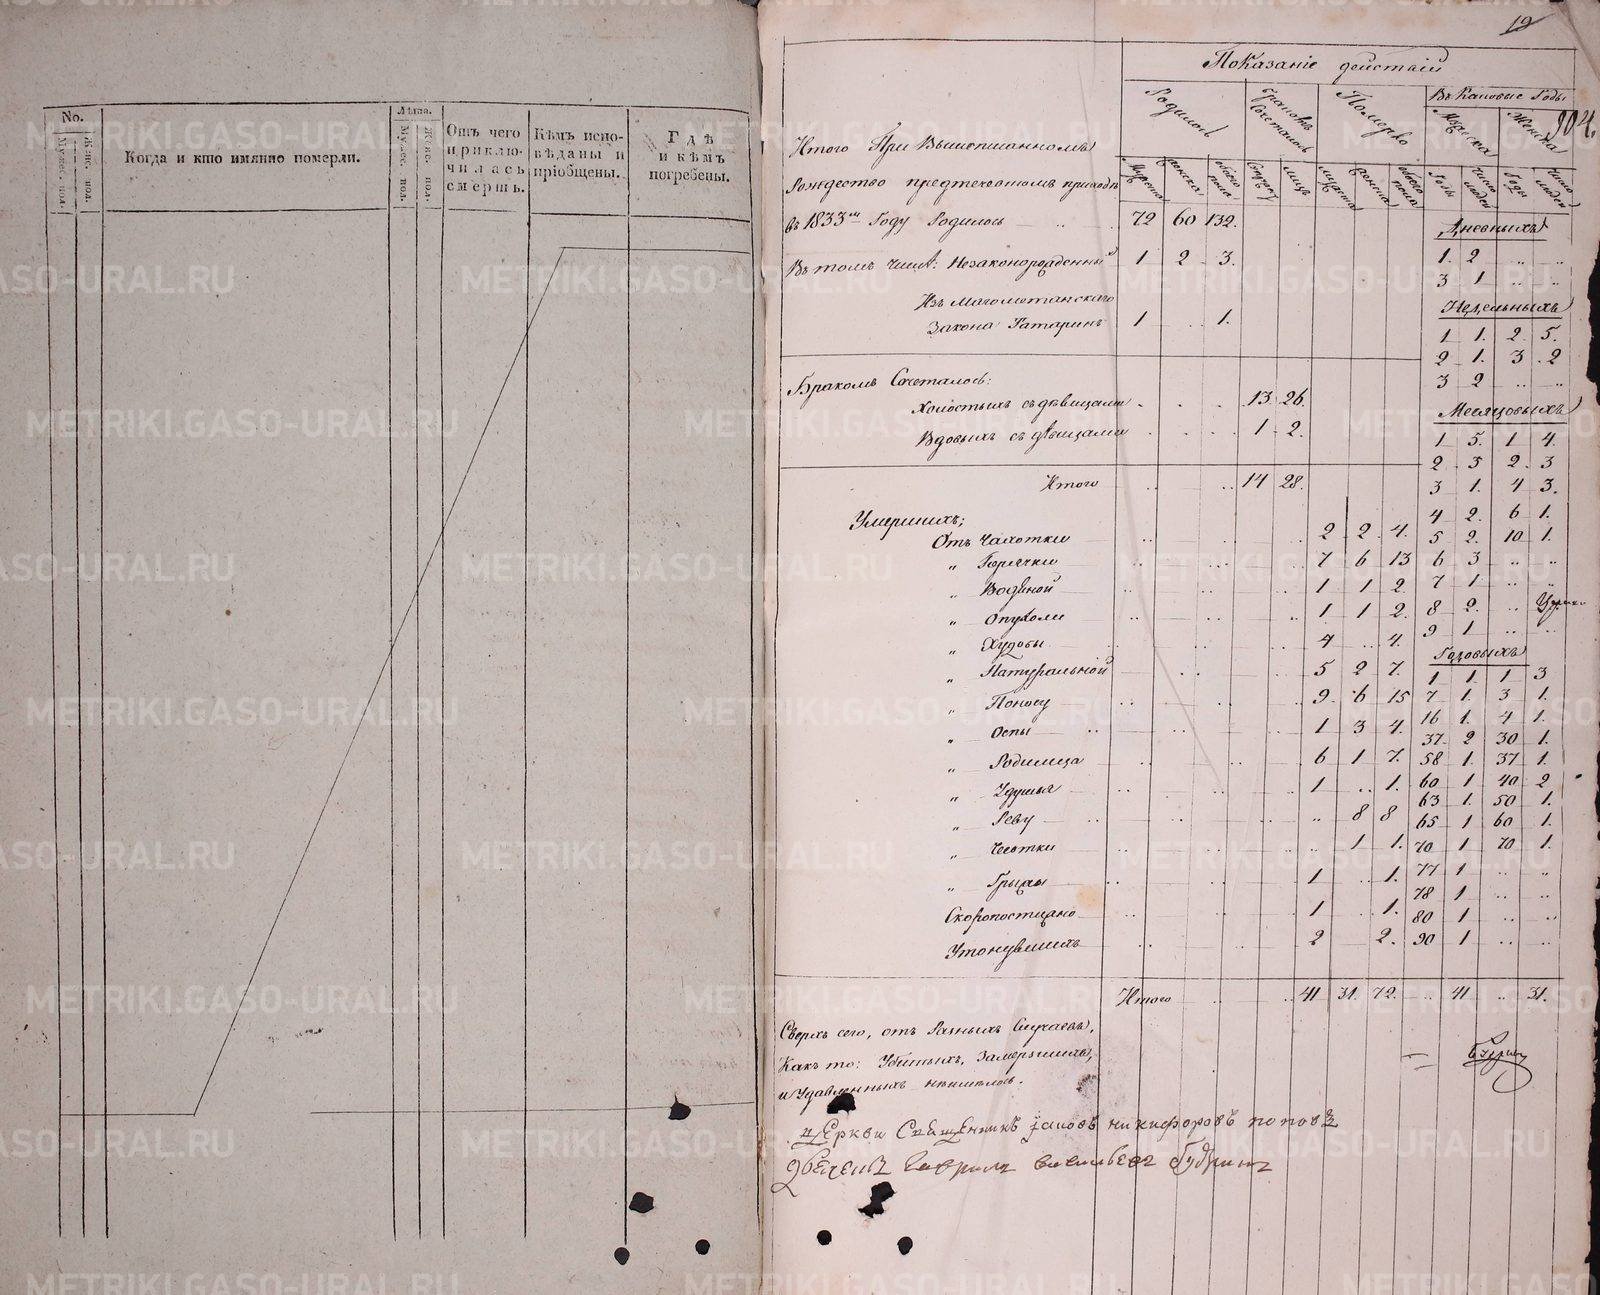 No.
Мужес. пол.
Женс. пол.
Когда и кто имянно померли.
Лѣта.
Мужес. пол.
Женс. пол.
Отъ чего
приклю-
чилась
смерть.
Кѣмъ испо-
вѣданы и
пріобщены.
Гдѣ
и кѣмъ
погребены.
19
904.
Показаніе действий
Родилось
Бракомъ Сочеталось
Померло
Въ Каковые Годы
Мужеска
Женска
Мужеска
женска
обоего пола
лицъ
мужеска
женска
обоего пола
Годы
число людей
Годы
число людей
Итого При Вышеписанномъ
Рождество предтеченскомъ приходѣ
въ 1833мъ Году Родилось 72 60 132.
Дневныхъ
Въ томъ числѣ: Незаконорожденныхъ 1 2 3. 1. 2
3 1
Изъ Магометанскаго
Закона Татаринъ 1 1.
Недельныхъ
1 1. 2 5.
2 1. 3 2
3 2
Бракомъ Сочеталось:
Холостыхъ съ девицами 13 26.
Месяцовыхъ
Вдовыхъ съ девицами 1 2. 1 5. 1 4.
2 3 2. 3
Итого 14 28. 3 1. 4 3.
Умершихъ; 4 2. 6 1.
Отъ Чахотки 2 2 4. 5 2. 10 1.
" Горячки 7 6 13 6 3
" Водяной 1 1 2. 7 1
" Опухоли 1 1 2. 8 2.
" Худобы 4 4. 9 1
Годовыхъ
" Натуральной 5 2 7. 1 1. 1 3
" Поносу 9 6 15 7 1. 3 1.
" Оспы 1 3 4. 16 1. 4 1.
37. 2 30 1.
" Родимца 6 1 7. 58 1. 37 1.
" Удушья 1 1. 60 1 40 2
63 1. 50 1.
" Реву 8 8 65 1 60 1.
" Чесотки 1 1. 70 1 70 1.
" Грыжы 1 1. 77 1
78 1
Скоропостижно 1 1. 80 1
Утонувшихъ 2 2. 90 1
Итого 41 31. 72. 41 31.
Сверхъ сего, отъ Разныхъ Случаевъ,
Какъ то: Убитыхъ, Замерзшихъ,
и Удавленныхъ неимелось.
церкви Священникъ Іаковъ никифоровъ поповъ